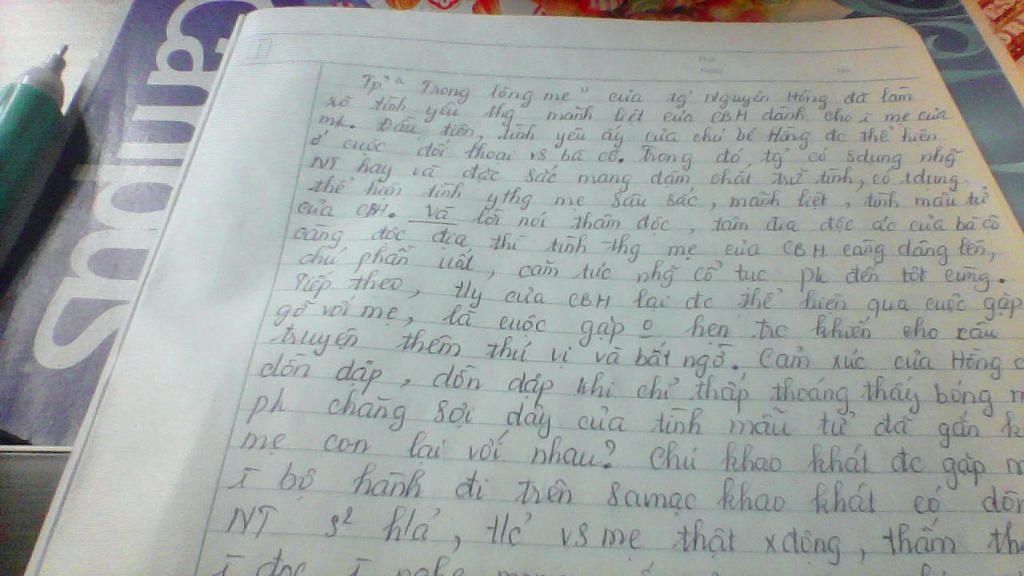 Tp' " Trong lòng mẹ " của tg' Nguyên Hồng đã làm
rõ tình yêu thg mãnh liệt của CBH dành cho mẹ của
mk. Đầu tiên, tình yêu ấy của chú bé Hồng đc thể hiện
ở cuộc đối thoại vs bà cô. Trong đó tg' có sdụng nhg~
NT hay và đặc sắc mang đậm chất trữ tình, có tdụng
thể hiện tình ythg mẹ sâu sắc, mãnh liệt, tình mẫu tử
của CBH. Và lời nói thâm độc, tâm địa độc ác của bà cô
càng độc địa thì tình thg mẹ của CBH càng dâng lên,
chú phẫn uất, căm tức nhg~ cổ tục pk đến tột cùng.
Tiếp theo, tty của CBH lại đc thể hiện qua cuộc gặp
gỡ với mẹ, là cuộc gặp o hẹn trc khiến cho câu
truyện thêm thú vị và bất ngờ. Cảm xúc của Hồng
dồn dập, dồn dập khi chỉ thấp thoáng thấy bóng
ph chăng sợi dây của tình mẫu tử đã gắn
mẹ con lại với nhau? Chú khao khát đc gặp
bộ hành đi trên samạc khao khát có
NT s² h/ả, t/cả vs mẹ thật xđộng, thấm
đọc nghe
Campus